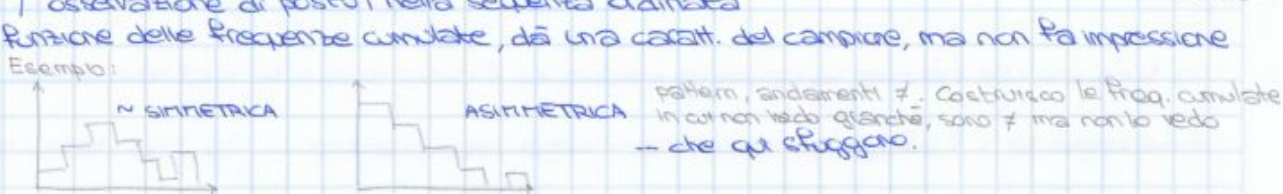 l'osservazione di posto i nella sequenza ordinata
funzione delle frequenze cumulate, dà una caratt. del campione, ma non fa impressione
Esempio:
~ SIMMETRICA
ASIMMETRICA
pattern, andamenti ≠. Costruisco le freq. cumulate
in cui non vedo granché, sono ≠ ma non lo vedo
— che qui sfuggono.